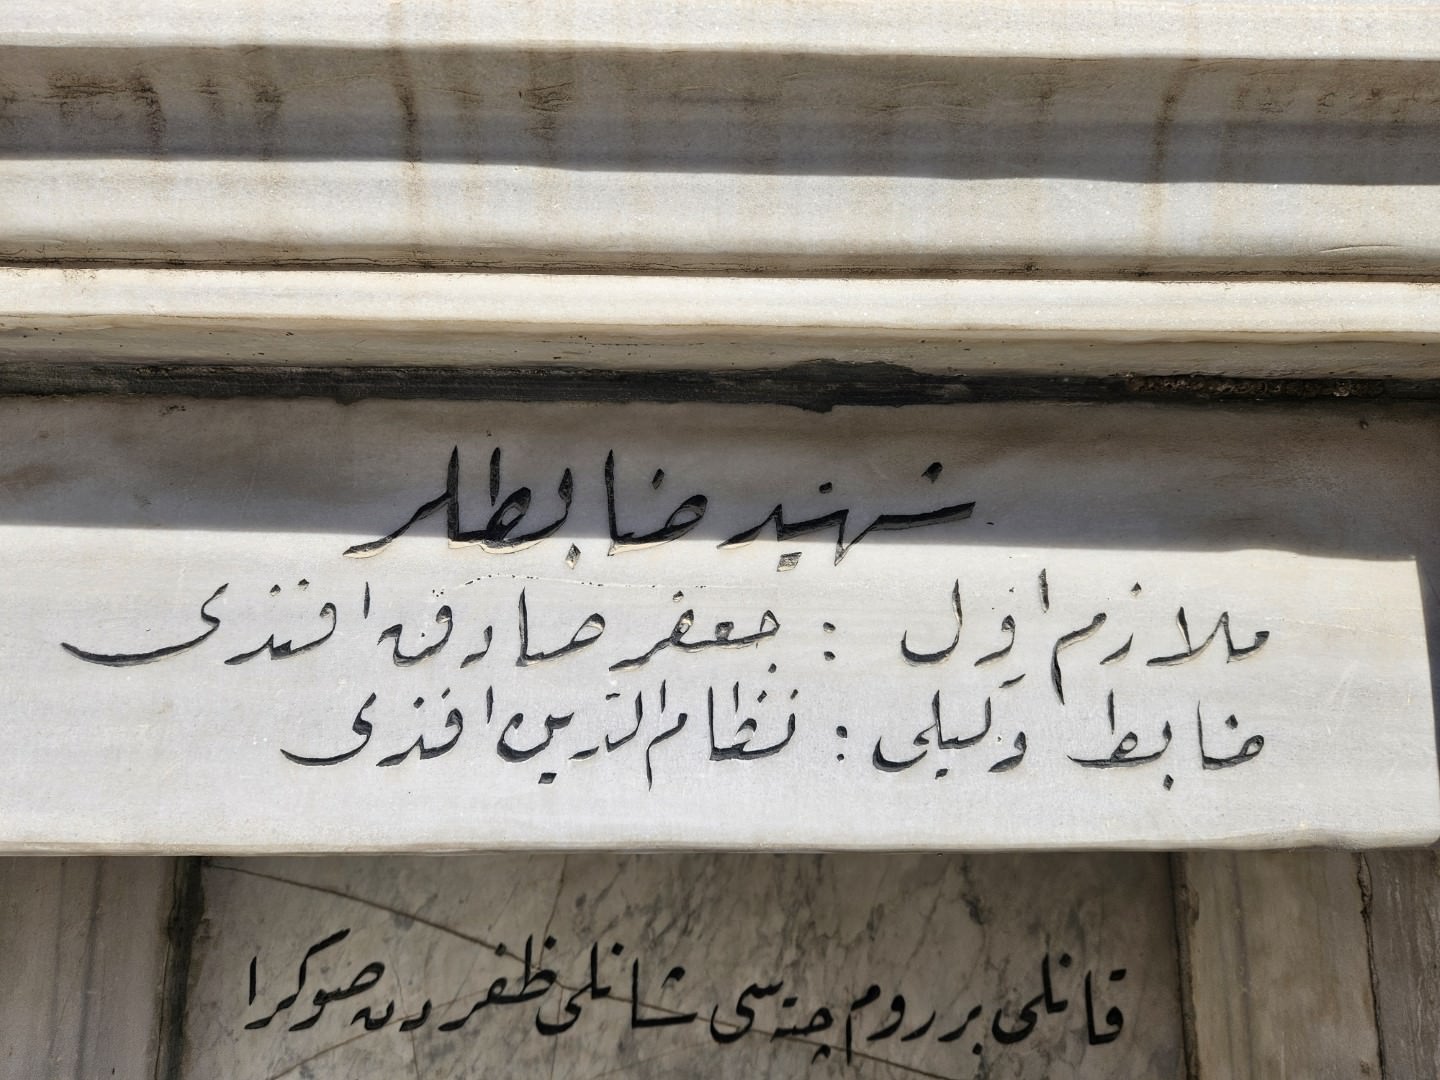 شهید ضابطلر
ملازم اوّل : جعفر صادق افندی
ضابط وکیلی : نظام الدّین افندی
قانلی بر روم چته‌سی شانلی ظفردن صوکرا